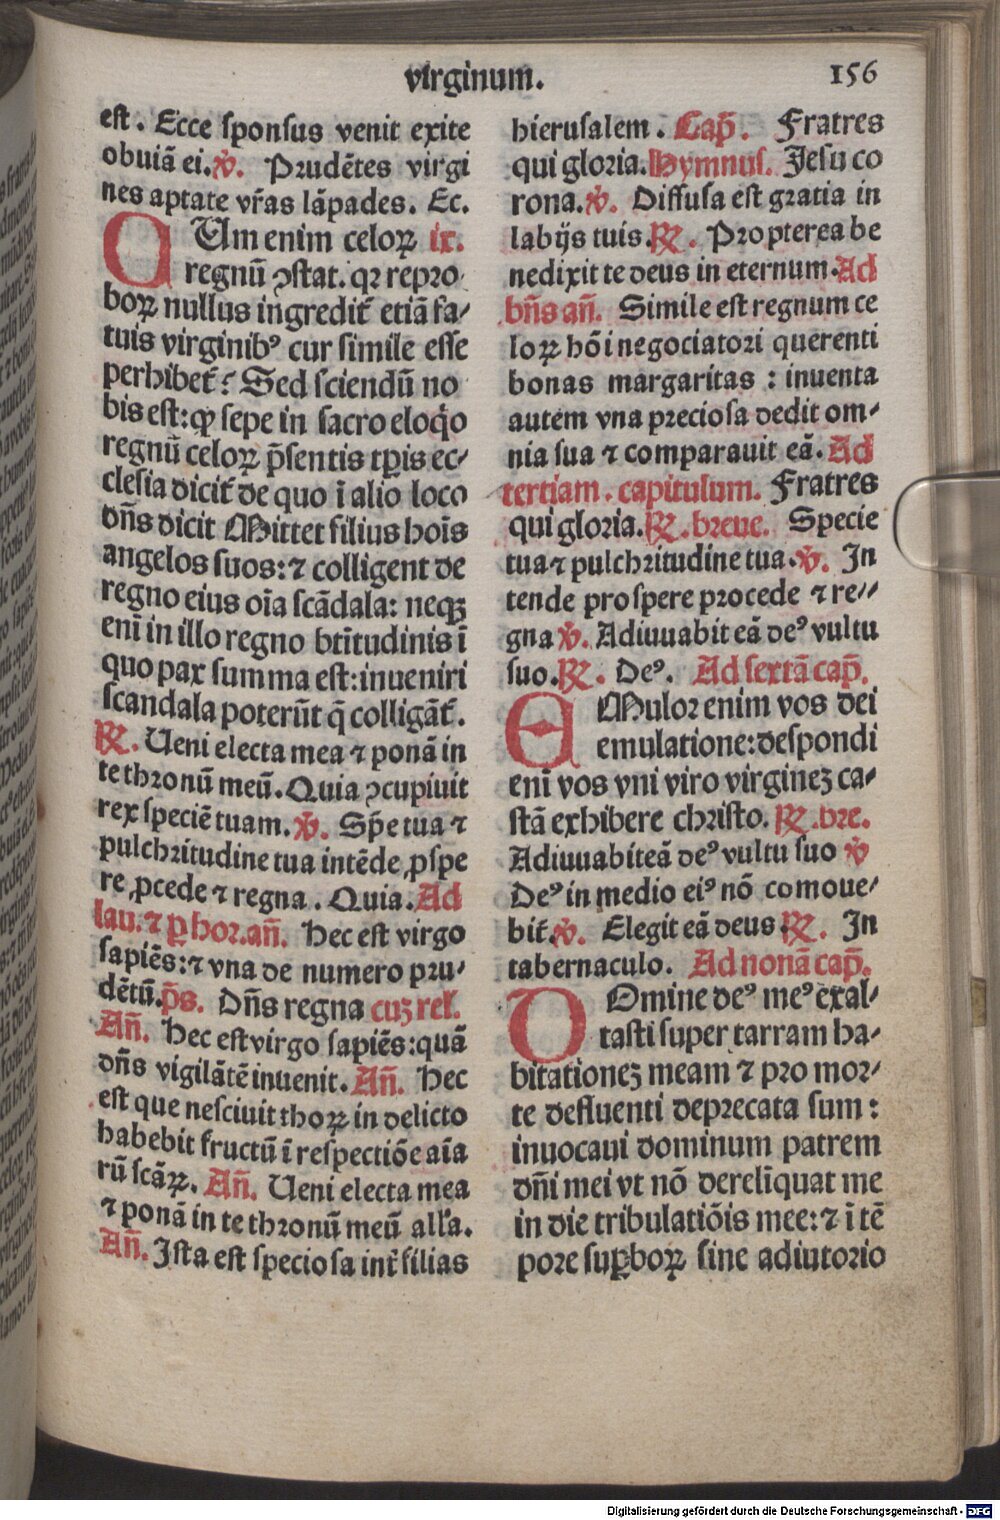 virginum.
156
est. Ecce sponsus venit exite
obuiã ei. ℣. Prudẽtes virgi
nes aptate vr̃as lãpades. Ec.
QUm enim celoꝝ ix.
regnũ ꝯstat. qꝛ repro
boꝝ nullus ingredit᷑ etiã fa⸗
tuis virginibꝰ cur simile esse
perhibet᷑? Sed sciendũ no
bis est: ꝙ sepe in sacro eloq̇o
regnũ celoꝝ p̃sentis tp̃is ec⸗
clesia dicit᷑ de quo ĩ alio loco
dñs dicit Mittet filius hoĩs
angelos suos: ⁊ colligent de
regno eius oĩa scãdala: neqꝫ
enĩ in illo regno bt̃itudinis ĩ
quo pax summa est: inueniri
scandala poterũt q̃ colligãt᷑.
℟. Ueni electa mea ⁊ ponã in
te thronũ meũ. Quia ꝯcupiuit
rex speciẽ tuam. ℣. Sp̃e tua ⁊
pulchritudine tua intẽde ꝓspe
re ꝓcede ⁊ regna. Quia. Ad
lau. ⁊ ꝑ hor. añ. Hec est virgo
sapiẽs: ⁊ vna de numero pru⸗
dẽtũ. p̃s. Dñs regna cuꝫ rel.
Añ. Hec est virgo sapiẽs: quã
dñs vigilãtẽ inuenit. Añ. Hec
est que nesciuit thoꝝ in delicto
habebit fructũ ĩ respectiõe aĩa
rũ scãꝝ. Añ. Ueni electa mea
⁊ ponã in te thronũ meũ all'a.
Añ. Ista est speciosa int̃ filias
hierusalem. Cap̃. Fratres
qui gloria. Hymnus. Jesu co
rona. ℣. Diffusa est gratia in
labijs tuis. ℟. Propterea be
nedixit te deus in eternum. Ad
bñs añ. Simile est regnum ce
loꝝ hõi negociatori querenti
bonas margaritas: inuenta
autem vna preciosa dedit om⸗
nia sua ⁊ comparauit eã. Ad
tertiam. capitulum. Fratres
qui gloria. ℟. breue. Specie
tua ⁊ pulchritudine tua. ℣. In
tende prospere procede ⁊ re⸗
gna ℣. Adiuuabit eã deꝰ vultu
suo. ℟. Deꝰ. Ad sextã cap̃.
EMulor enim vos dei
emulatione: despondi
enĩ vos vni viro virgineꝫ ca⸗
stã exhibere christo. ℟. bre.
Adiuuabit eã deꝰ vultu suo ℣
Deꝰ in medio eiꝰ nõ comoue⸗
bit᷑. ℣. Elegit eã deus ℟. In
tabernaculo. Ad nonã cap̃.
DOmine deꝰ meꝰ exal⸗
tasti super tarram ha⸗
bitationeꝫ meam ⁊ pro mor⸗
te defluenti deprecata sum:
inuocaui dominum patrem
dñi mei vt nõ derelĩquat me
in die tribulatiõis mee: ⁊ ĩ tẽ
pore suꝑboꝝ sine adiutorio
Digitalisierung gefördert durch die Deutsche Forschungsgemeinschaft - DFG